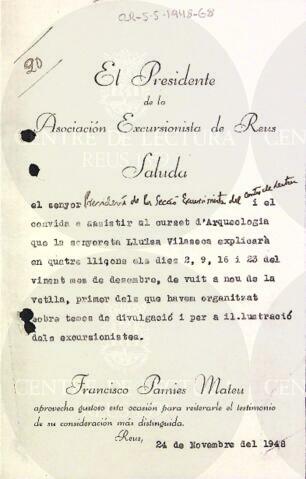 OR-5-5-1948-68
20
El Presidente
de la
Asociación Excursionista de Reus
CENTRE DE LECTURA
REUS
Saluda
el senyor President de la Secció Excursionista del Centre de Lectura i el
convida a assistir al curset d'Arqueologia
que la senyoreta Lluïsa Vilaseca explicarà
en quatre lliçons els dies 2, 9, 16 i 23 del
vinent mes de desembre, de vuit a nou de la
vetlla, primer dels que havem organitzat
sobre temes de divulgació i per a il.lustració
dels excursionistes.
Francisco Pamies Mateu
aprovecha gustoso esta ocasión para reiterarle el testimonio
de su consideración más distinguida.
Reus, 24 de Novembre del 1948